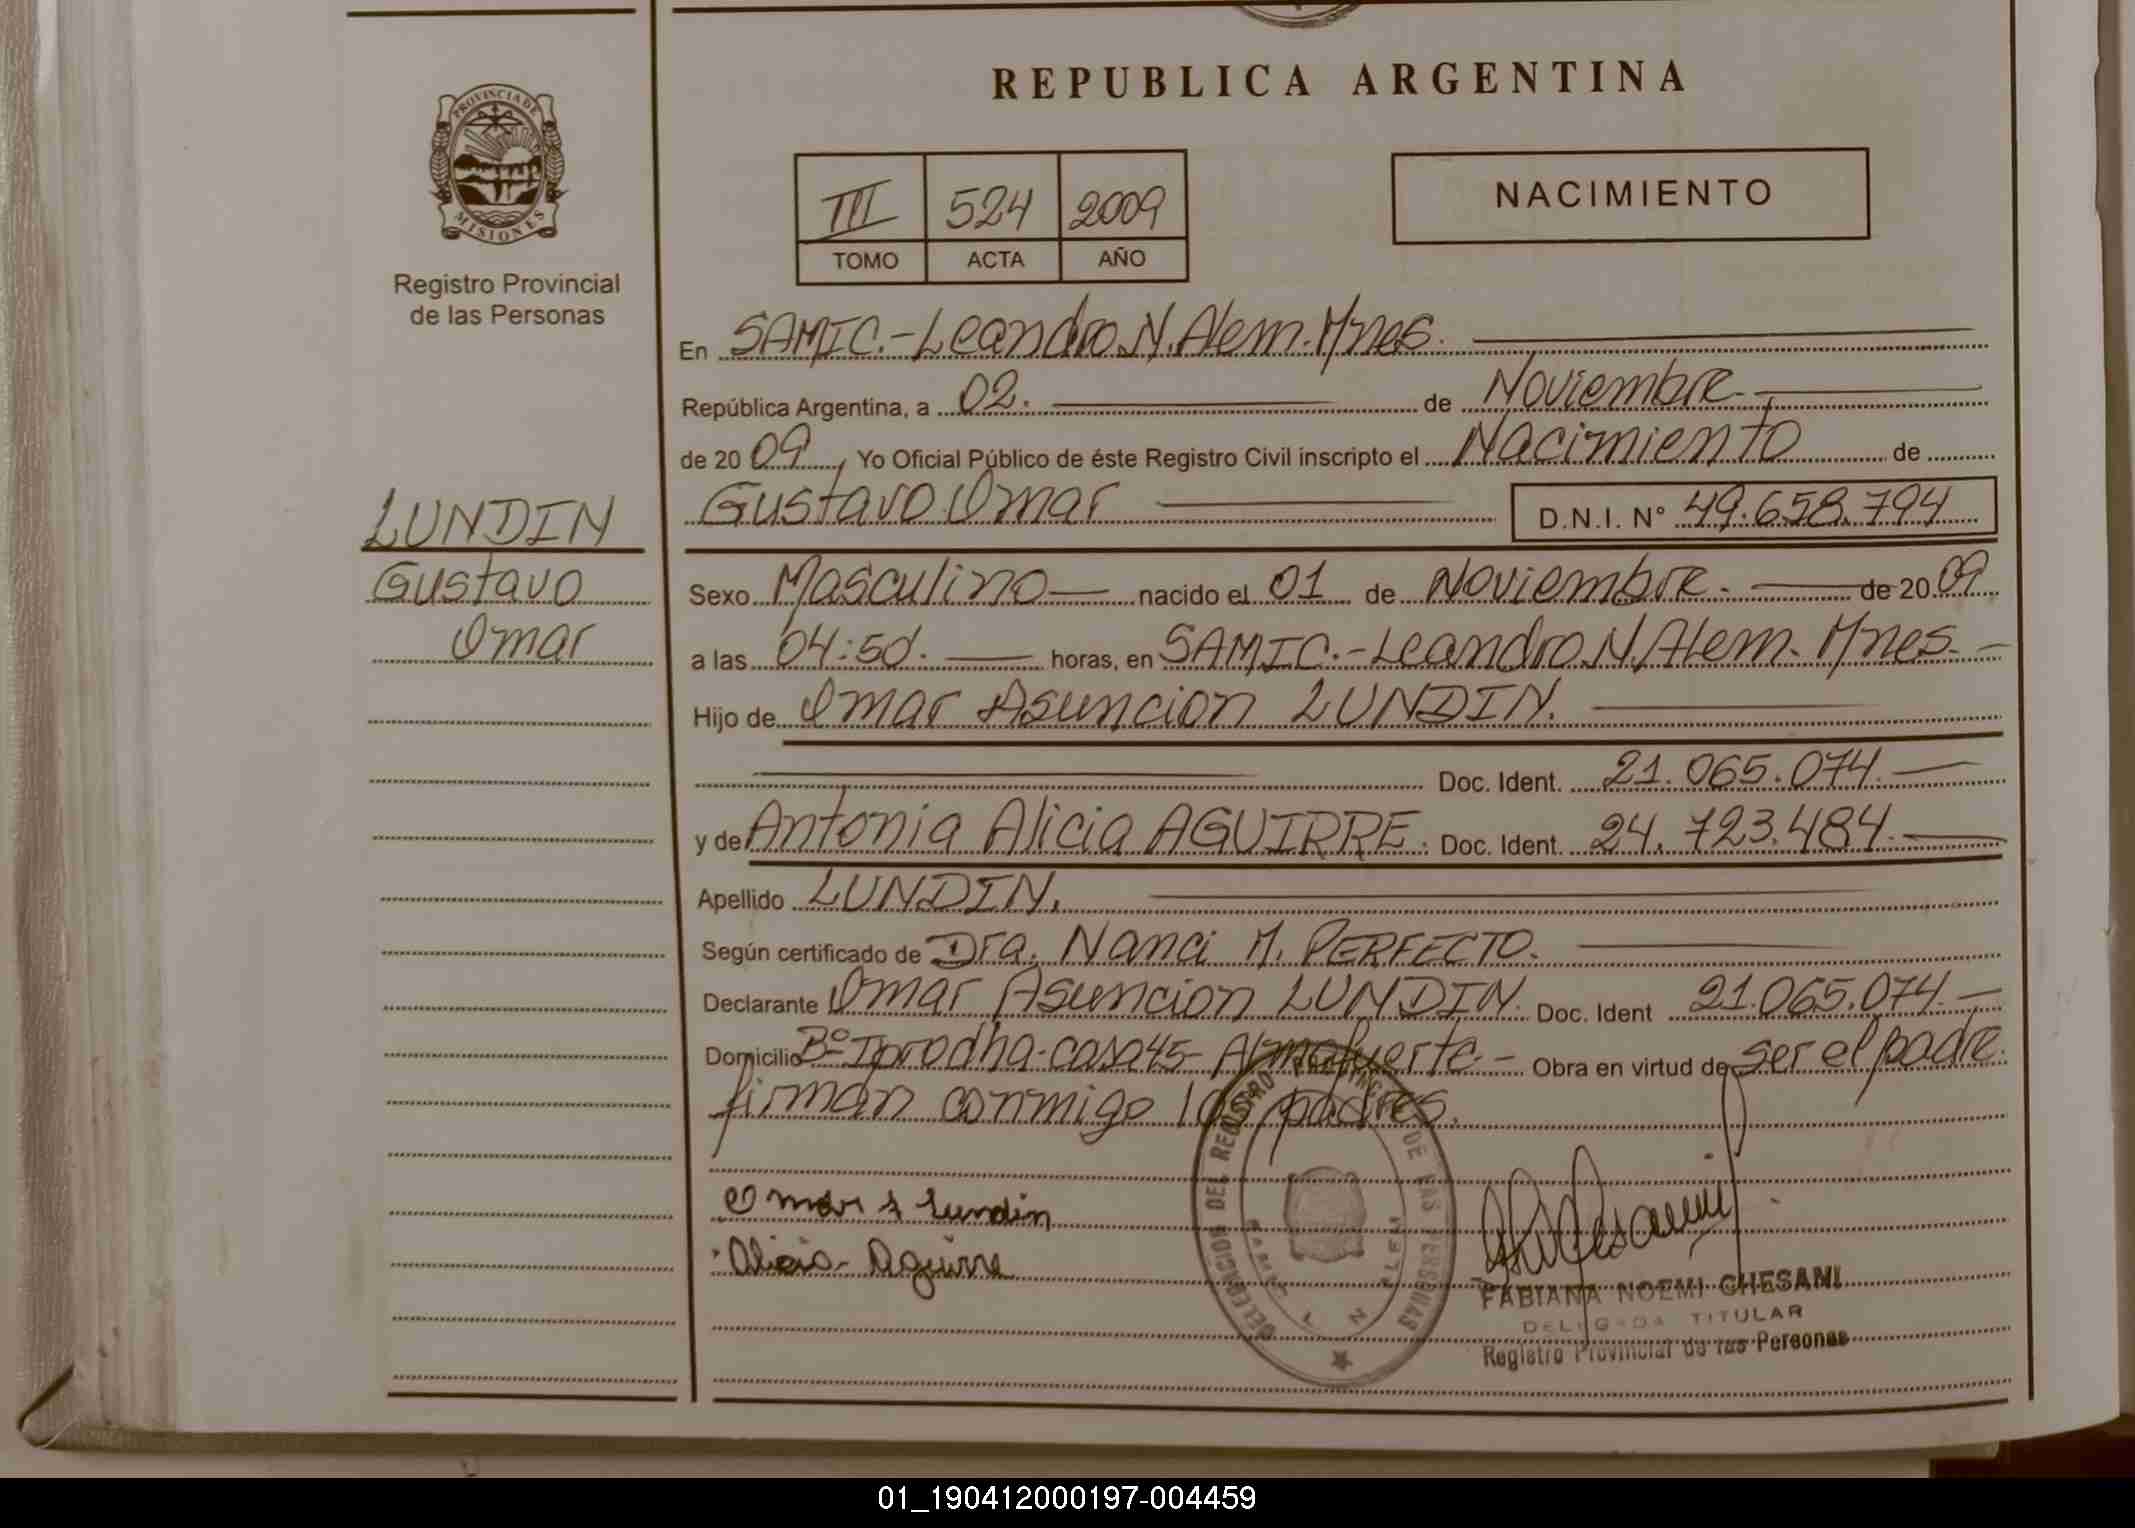 REPUBLICA ARGENTINA
PROVINCIA DE
MISIONES
Registro Provincial
de las Personas
III 524 2009
TOMO ACTA AÑO
NACIMIENTO
En SAMIC.-Leandro N. Alem. Mnes.
República Argentina, a 02. de Noviembre
de 20 09, Yo Oficial Público de éste Registro Civil inscripto el Nacimiento de
Gustavo Omar D.N.I. N° 49.658.794
LUNDIN
Gustavo
Omar
Sexo Masculino nacido el 01 de Noviembre. de 20 09
a las 04:50. horas, en SAMIC.-Leandro N. Alem. Mnes.-
Hijo de Omar Asuncion LUNDIN.
Doc. Ident. 21.065.074.
y de Antonia Alicia AGUIRRE. Doc. Ident. 24.723.484.
Apellido LUNDIN.
Según certificado de Dra. Nanci M. PERFECTO.
Declarante Omar Asuncion LUNDIN. Doc. Ident 21.065.074.-
Domicilio B° Iprodha-casa 45- Almafuerte.- Obra en virtud de ser el padre.
firman conmigo los padres.
Omar A Lundin
Alicia Aguirre
DELEGACION DEL REGISTRO PROVINCIAL DE LAS PERSONAS
SAMIC L N ALEM
FABIANA NOEMI CHESANI
DELEGADA TITULAR
Registro Provincial de las Personas
01_190412000197-004459